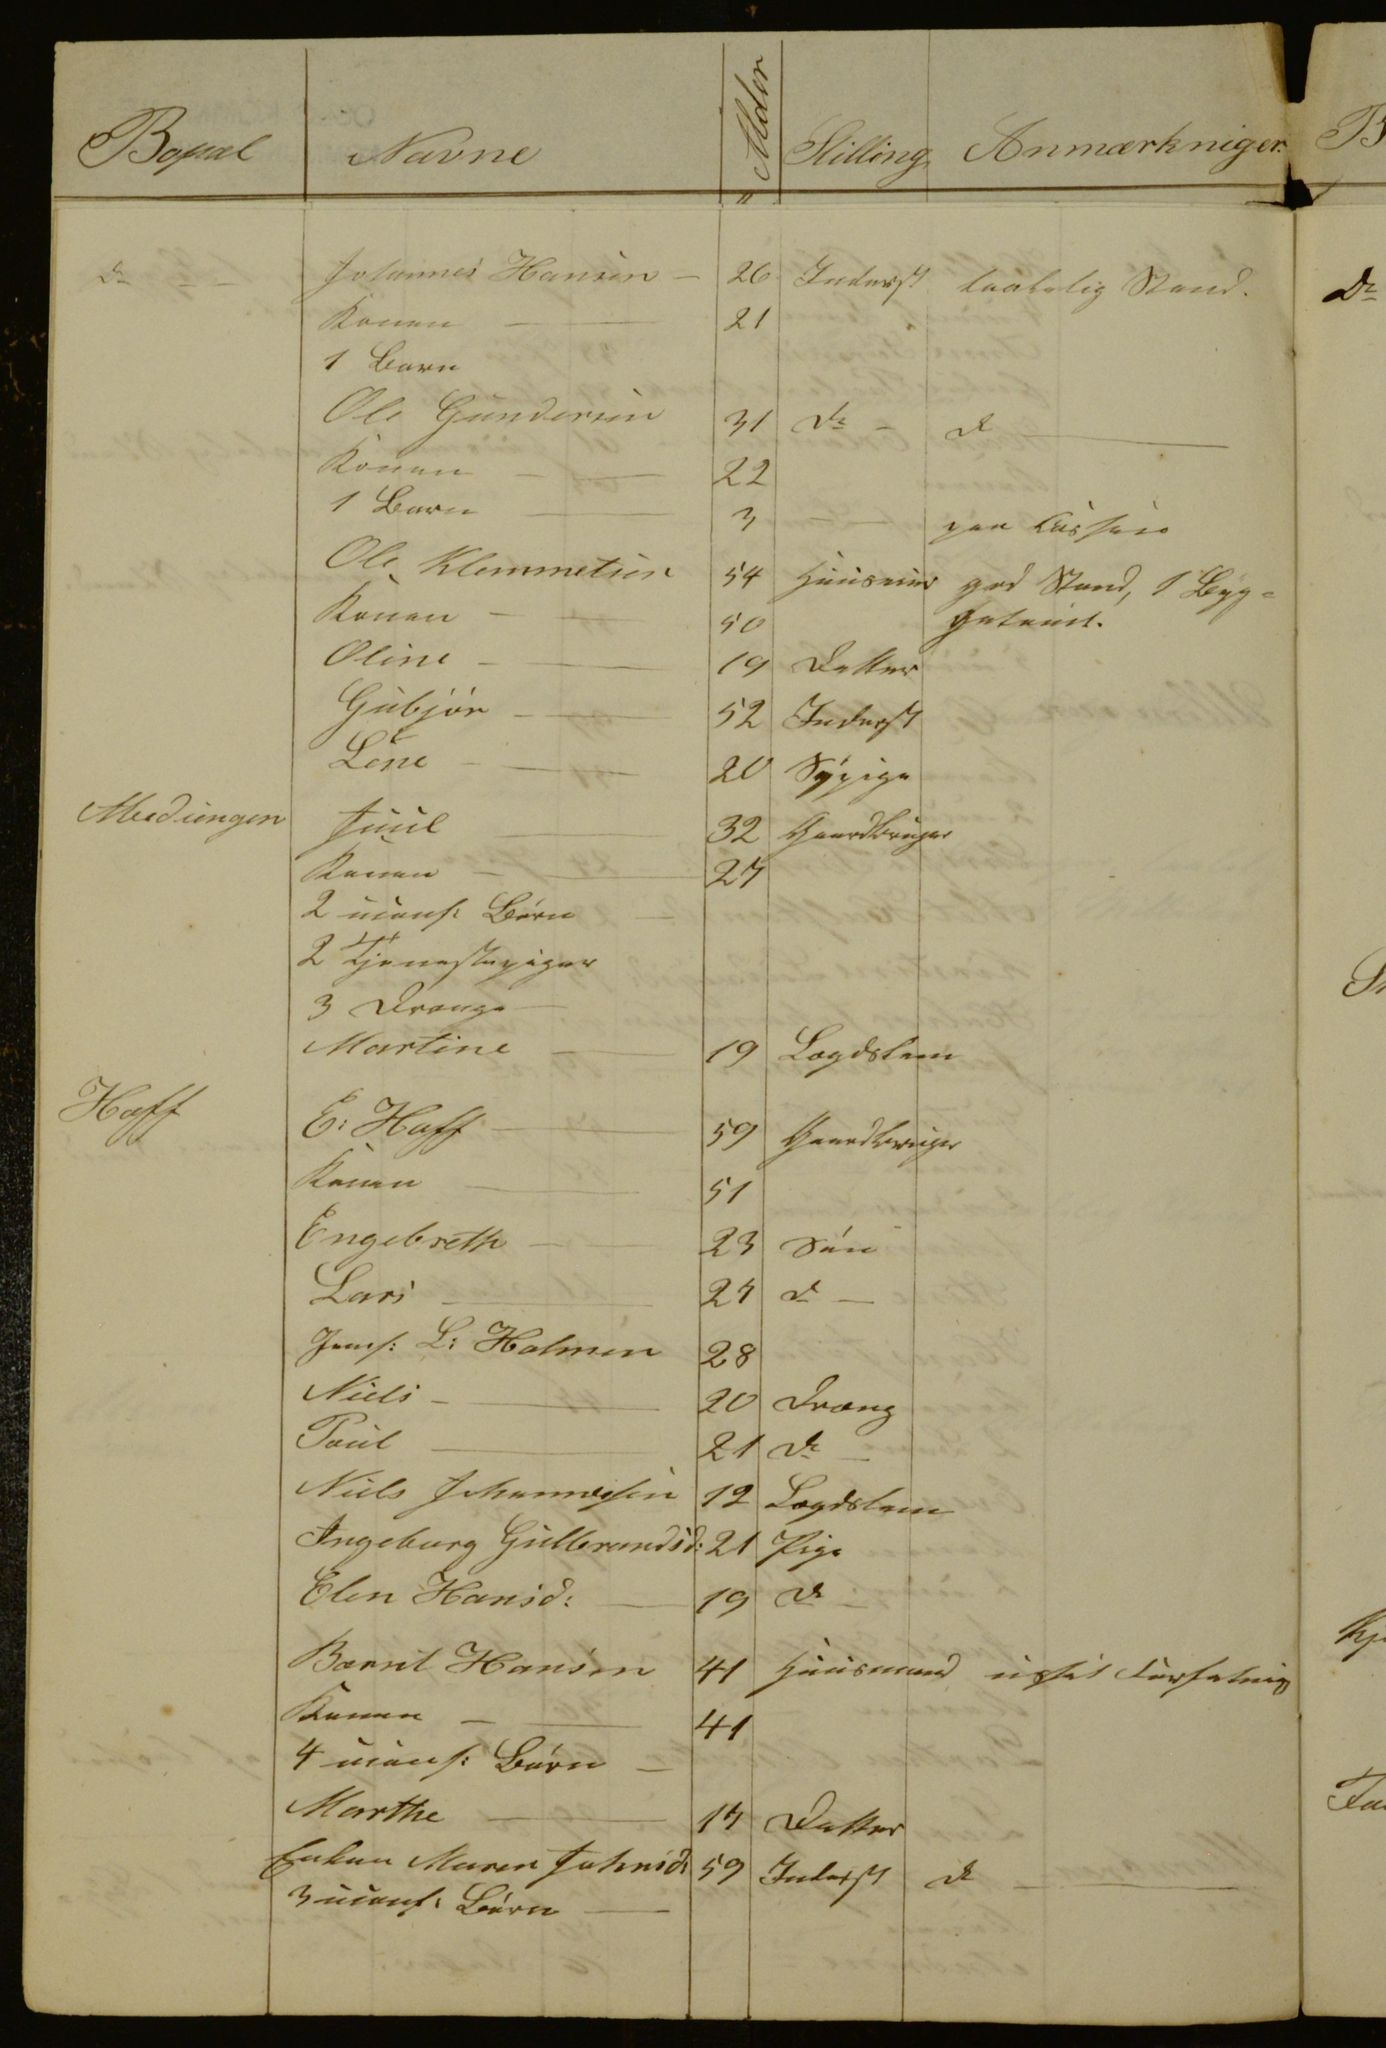 Bopæl Navne Alder Stilling Anmærkniger.
Do - - Johannes Hansen - 26 Inderst taalelig Stand.
Konen 21
1 Barn
Ole Gundersen 31 Do - Do
Konen 22
1 Barn 3
Ole Klemmetsen 54 god Stand, 1 Byg=
Konen 50
Oline 19 Datter
Gubjör 52 Inderst
Léne 20 Sÿpige
Juul 32 Gaardbruger
Konen 27
2 uconf. Börn
2 Tjenestepiger
3 Drenge
Martine 19 Lægdslem
Haff E: Haff 59 Gaardbruger
Konen 51
Engebreth 23 Sön
Lars 24 Do
L: Holmen 28
Niels 20 Dreng
Poul 21 Do
Niels Johannesen 12 Lægdslem
Ingeborg Gulbrandsd: 21 Pige
Elen Hansd: 19 Do
Bernt Hansen 41 Huusmand ussel Forfatning
Konen 41
4 uconf: Börn
Marthe 17 Datter
Enken Maren Johnsd: 59 Inderst Do
3 uconf: Börn
B
Do